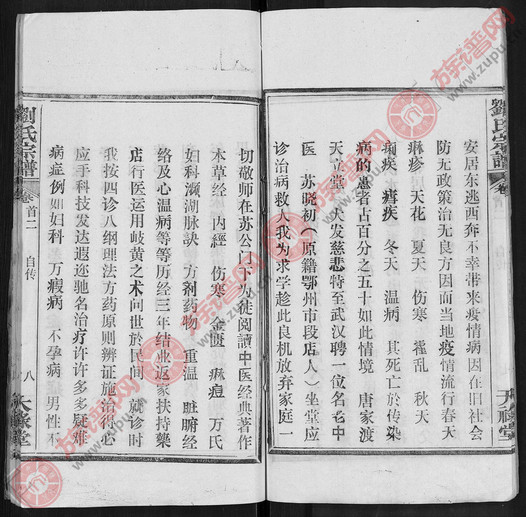 劉氏宗譜
卷首二
大祿堂
安居东逃西奔不幸带来疫情病因在旧社会
防无政策治无良方因而当地疫情流行春天
痳疹 天花 夏天 伤寒 霍乱 秋天
痢疾 瘧疾 冬天 温病 其死亡於传染
病的患者占百分之五十如此情境 唐家渡
天立堂 大发慈悲特至武汉聘一位名老中
医 苏晓初（原籍鄂州市段店人）坐堂应
诊治病救人我为求学趁此良机放弃家庭一
切敬师在苏公门下为徒阅讀中医经典著作
本草经 内經 伤寒 金匮 痳痘 万氏
妇科 濒湖脉訣 方剂药物 重温 脏腑经
络及心温病等等历经三年结业返家扶持藥
店行医运用岐黄之术问世於民间 就诊时
我按四诊八纲理法方药原则辨证施治得心
应手科技发达遐迩驰名治疗许许多多疑难
病症例如妇科 万瘕病 不孕病 男性不
劉氏宗譜
卷首二 自传
八
大祿堂
族谱网
www.zupu.cn